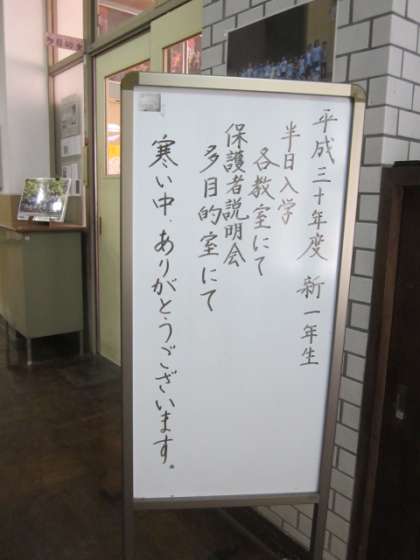 平成三十年度 新一年生
半日入学
各教室にて
保護者説明会
多目的室にて
寒い中、ありがとうございます。